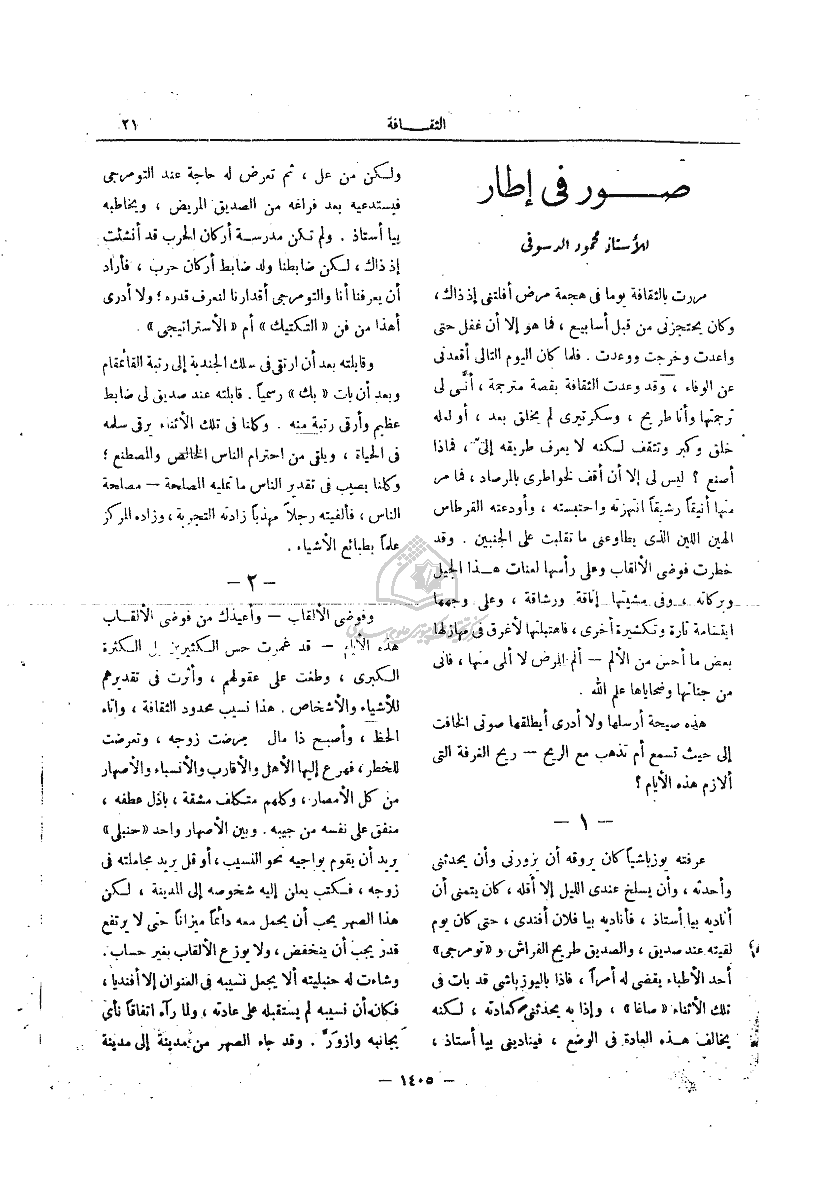 ٢١
الثقـافة
صور فى إطار
للأستاذ محمود الدسوقى
مررت بالثقافة يوما فى هجمة مرض أفلتنى إذ ذاك ،
وكان يحتجزنى من قبل أسابيع ، فما هو إلا أن غفل حتى
واعدت وخرجت ووعدت . فلما كان اليوم التالى أقعدنى
عن الوفاء ، وقد وعدت الثقافة بقصة مترجمة ، أنَّى لى
ترجمتها وأنا طريح ، وسكرتيرى لم يخلق بعد ، أو لعله
خلق وكبر وتثقف لكنه لا يعرف طريقه إلىّ ، فماذا
أصنع ؟ ليس لى إلا أن أقف لخواطرى بالمرصاد ، فما مر
منها أنيقاً رشيقاً انتهزته واحتبسته ، وأودعته القرطاس
الهين اللين الذى يطاوعنى ما تقلبت على الجنبين . وقد
خطرت فوضى الألقاب وعلى رأسها لعنات هـذا الجيل
وبركاته ، وفى مشيتها إناقة ورشاقة ، وعلى وجهها
ابتسامة تارة وتكشيرة أخرى ، فاهتبلتها لأغرق فى مهازلها
بعض ما أحس من الألم — ألم المرض لا ألمى منها ، فانى
من جناتها وضحاياها علم الله .
هذه صيحة أرسلها ولا أدرى أيطلقها صوتى الخافت
إلى حيث تسمع أم تذهب مع الريح — ريح الغرفة التى
ألازم هذه الأيام ؟
— ١ —
عرفته يوزباشياً كان يروقه أن يزورنى وأن يحدثنى
وأحدثه ، وأن يسلخ عندى الليل إلا أقله ، كان يتمنى أن
أناديه بيا أستاذ ، فأناديه بيا فلان أفندى ، حتى كان يوم
لقيته عند صديق ، والصديق طريح الفراش و «تومرجى»
أحد الأطباء يقضى له أمراً ، فاذا باليوزباشى قد بات فى
تلك الأثناء «صاغا» ، وإذا به يحدثنى كعادته ، لكنه
يخالف هـذه العادة فى الوضع ، فينادينى بيا أستاذ ،
ولكن من عل ، ثم تعرض له حاجة عند التومرجى
فيستدعيه بعد فراغه من الصديق المريض ، ويخاطبه
بيا أستاذ . ولم تكن مدرسة أركان الحرب قد أنشئت
إذ ذاك ، لكن ضابطنا ولد ضابط أركان حرب ، فأراد
أن يعرفنا أنا والتومرجى أقدارنا لنعرف قدره ؛ ولا أدرى
أهذا من فن «التكتيك» أم «الأستراتيجى» .
وقابلته بعد أن ارتقى فى سلك الجندية إلى رتبة القائمقام
وبعد أن بات «بك» رسمياً . قابلته عند صديق لى ضابط
عظيم وأرقى رتبة منه . وكلنا فى تلك الأثناء يرقى سلمه
فى الحياة ، ويلقى من احترام الناس الخالص والمصطنع ؛
وكلنا يصيب فى تقدير الناس ما تمليه المصلحة — مصلحة
الناس ، فألفيته رجلاً مهذباً زادته التجربة ، وزاده المركز
علماً بطبائع الأشياء .
— ٢ —
وفوضى الألقاب — وأعيذك من فوضى الألقاب
هذه الأيام — قد غمرت حس الكثيرين بل الكثرة
الكبرى ، وطغت على عقولهم ، وأثرت فى تقديرهم
للأشياء والأشخاص . هذا نسيب محدود الثقافة ، واتاه
الحظ ، وأصبح ذا مال مرضت زوجه ، وتعرضت
للخطر ، فهرع إليها الأهل والأقارب والأنسباء والأصهار
من كل الأمصار ، وكلهم متكلف مشقة ، باذل عطفه ،
منفق على نفسه من جيبه . وبين الأصهار واحد «حنبلى»
يريد أن يقوم بواجبه نحو النسيب ، أو قل يريد مجاملته فى
زوجه ، فـكتب يعلن إليه شخوصه إلى المدينة ، لكن
هذا الصهر يحب أن يحمل معه دائماً ميزاناً حتى لا يرتفع
قدر يجب أن ينخفض ، ولا يوزع الألقاب بغير حساب .
وشاءت له حنبليته ألا يجعل نسيبه فى العنوان إلا أفنديا ،
فكان أن نسيبه لم يستقبله على عادته ، ولما رآه اتفاقاً نأى
بجانبه وازورّ . وقد جاء الصهر من مدينة إلى مدينة
— ١٤٠٥ —